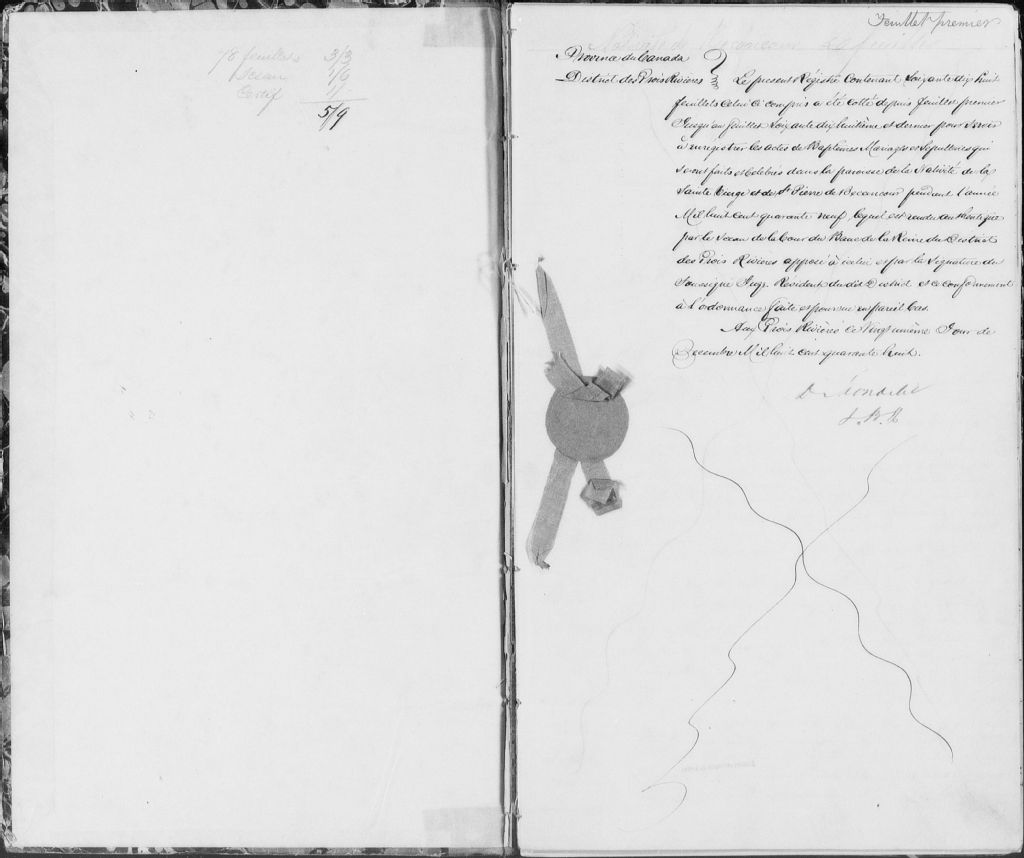 78 feuillets 3/3
1 Sceau 1/6
Certif 1/
5/9
Feuillet premier
Nativité de Becancour
Province du Canada
District des Trois Rivieres } Le present Régistre Contenant Soixante dix huit
feuillets Celui Ci compris a été Cotté depuis feuillet premier
Jusqu'au feuillet Soixante dix huitième et dernier pour Servir
à enregistrer les actes de Baptèmes Mariages et Sepultures qui
seront faits et Celébrés dans la paroisse de la Nativité de la
Sainte Vierge et de St Pierre de Becancour pendant l'année
Mil huit cent quarante neuf, lequel est rendu authentique
par le Sceau de la Cour du Banc de la Reine du District
des Trois Rivieres apposé à icelui et par la Signature du
Soussigné Juge Résident du dit District et ce Conformement
à l'ordonnance faite et pourvue en pareil Cas.
Aux Trois Rivières Ce Vingt unième Jour de
Decembre Mil huit cent quarante huit.
D. Mondelet
J. B. R